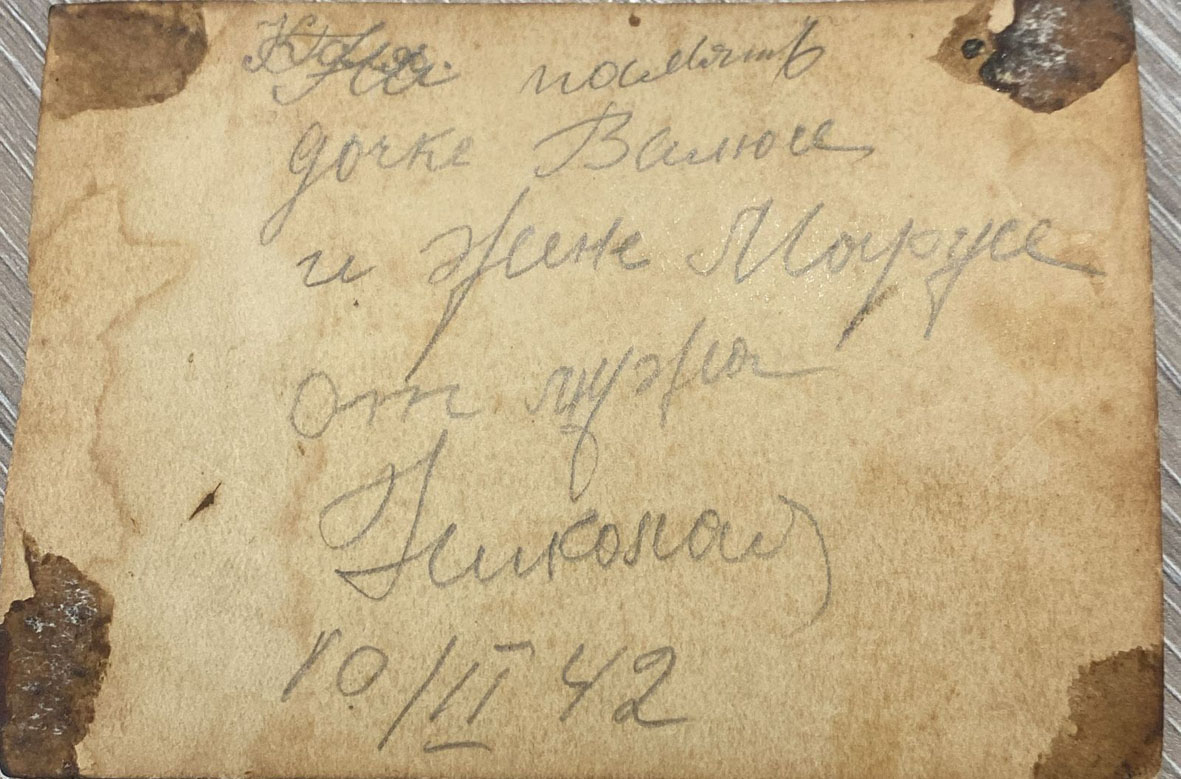 На память
дочке Валюсе
и жене Марусе
от мужа
Николая
10/II 42